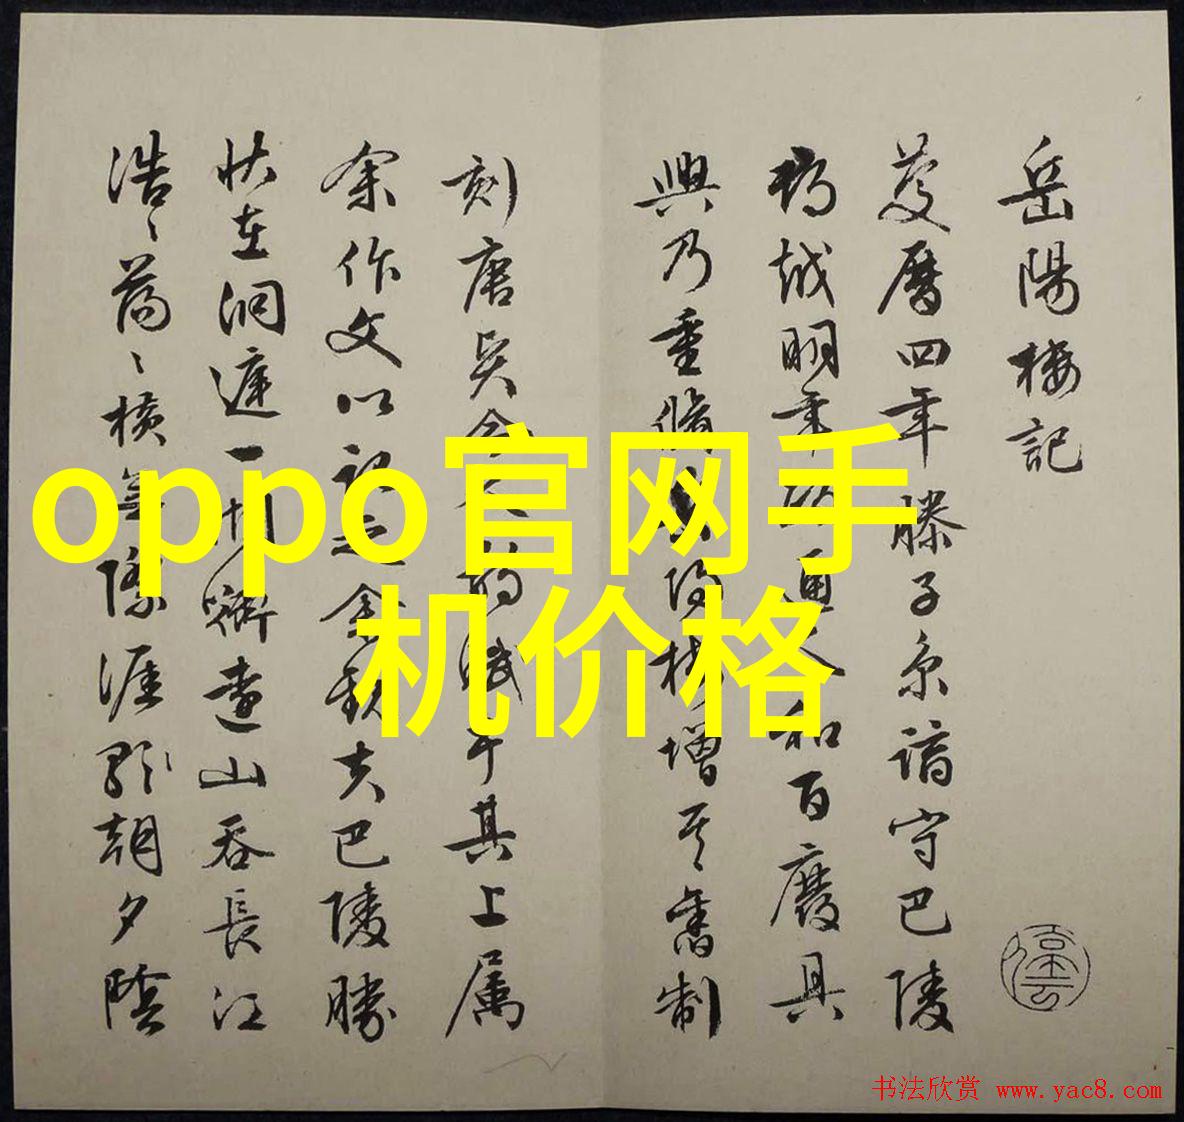 岳陽樓記
慶曆四年滕子京謫守巴陵
郡越明年政通人和百廢具
興乃重脩岳陽樓增其舊制
刻唐賢今人詩賦于其上属
余作文以記之余觀夫巴陵勝
狀在洞庭一湖銜遠山吞長江
浩〻蕩〻橫無際涯朝夕陰
oppo官网手
机价格
书法欣赏 www.yac8.com